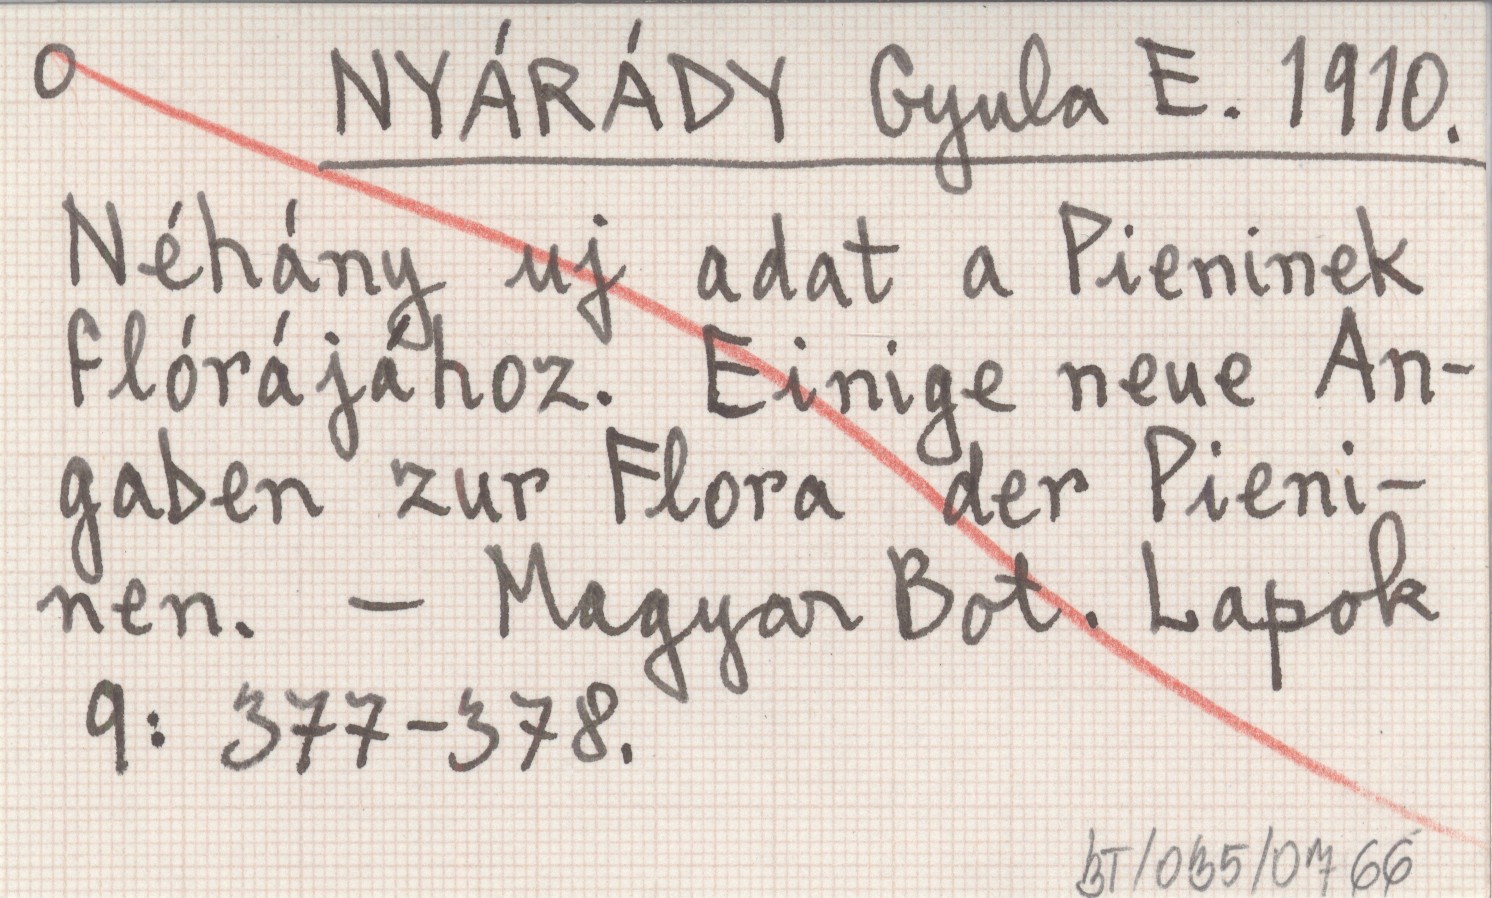 O NYÁRÁDY Gyula E. 1910.
Néhány uj adat a Pieninek
flórájához. Einige neue An-
gaben zur Flora der Pieni-
nen. – Magyar Bot. Lapok
9: 377-378.